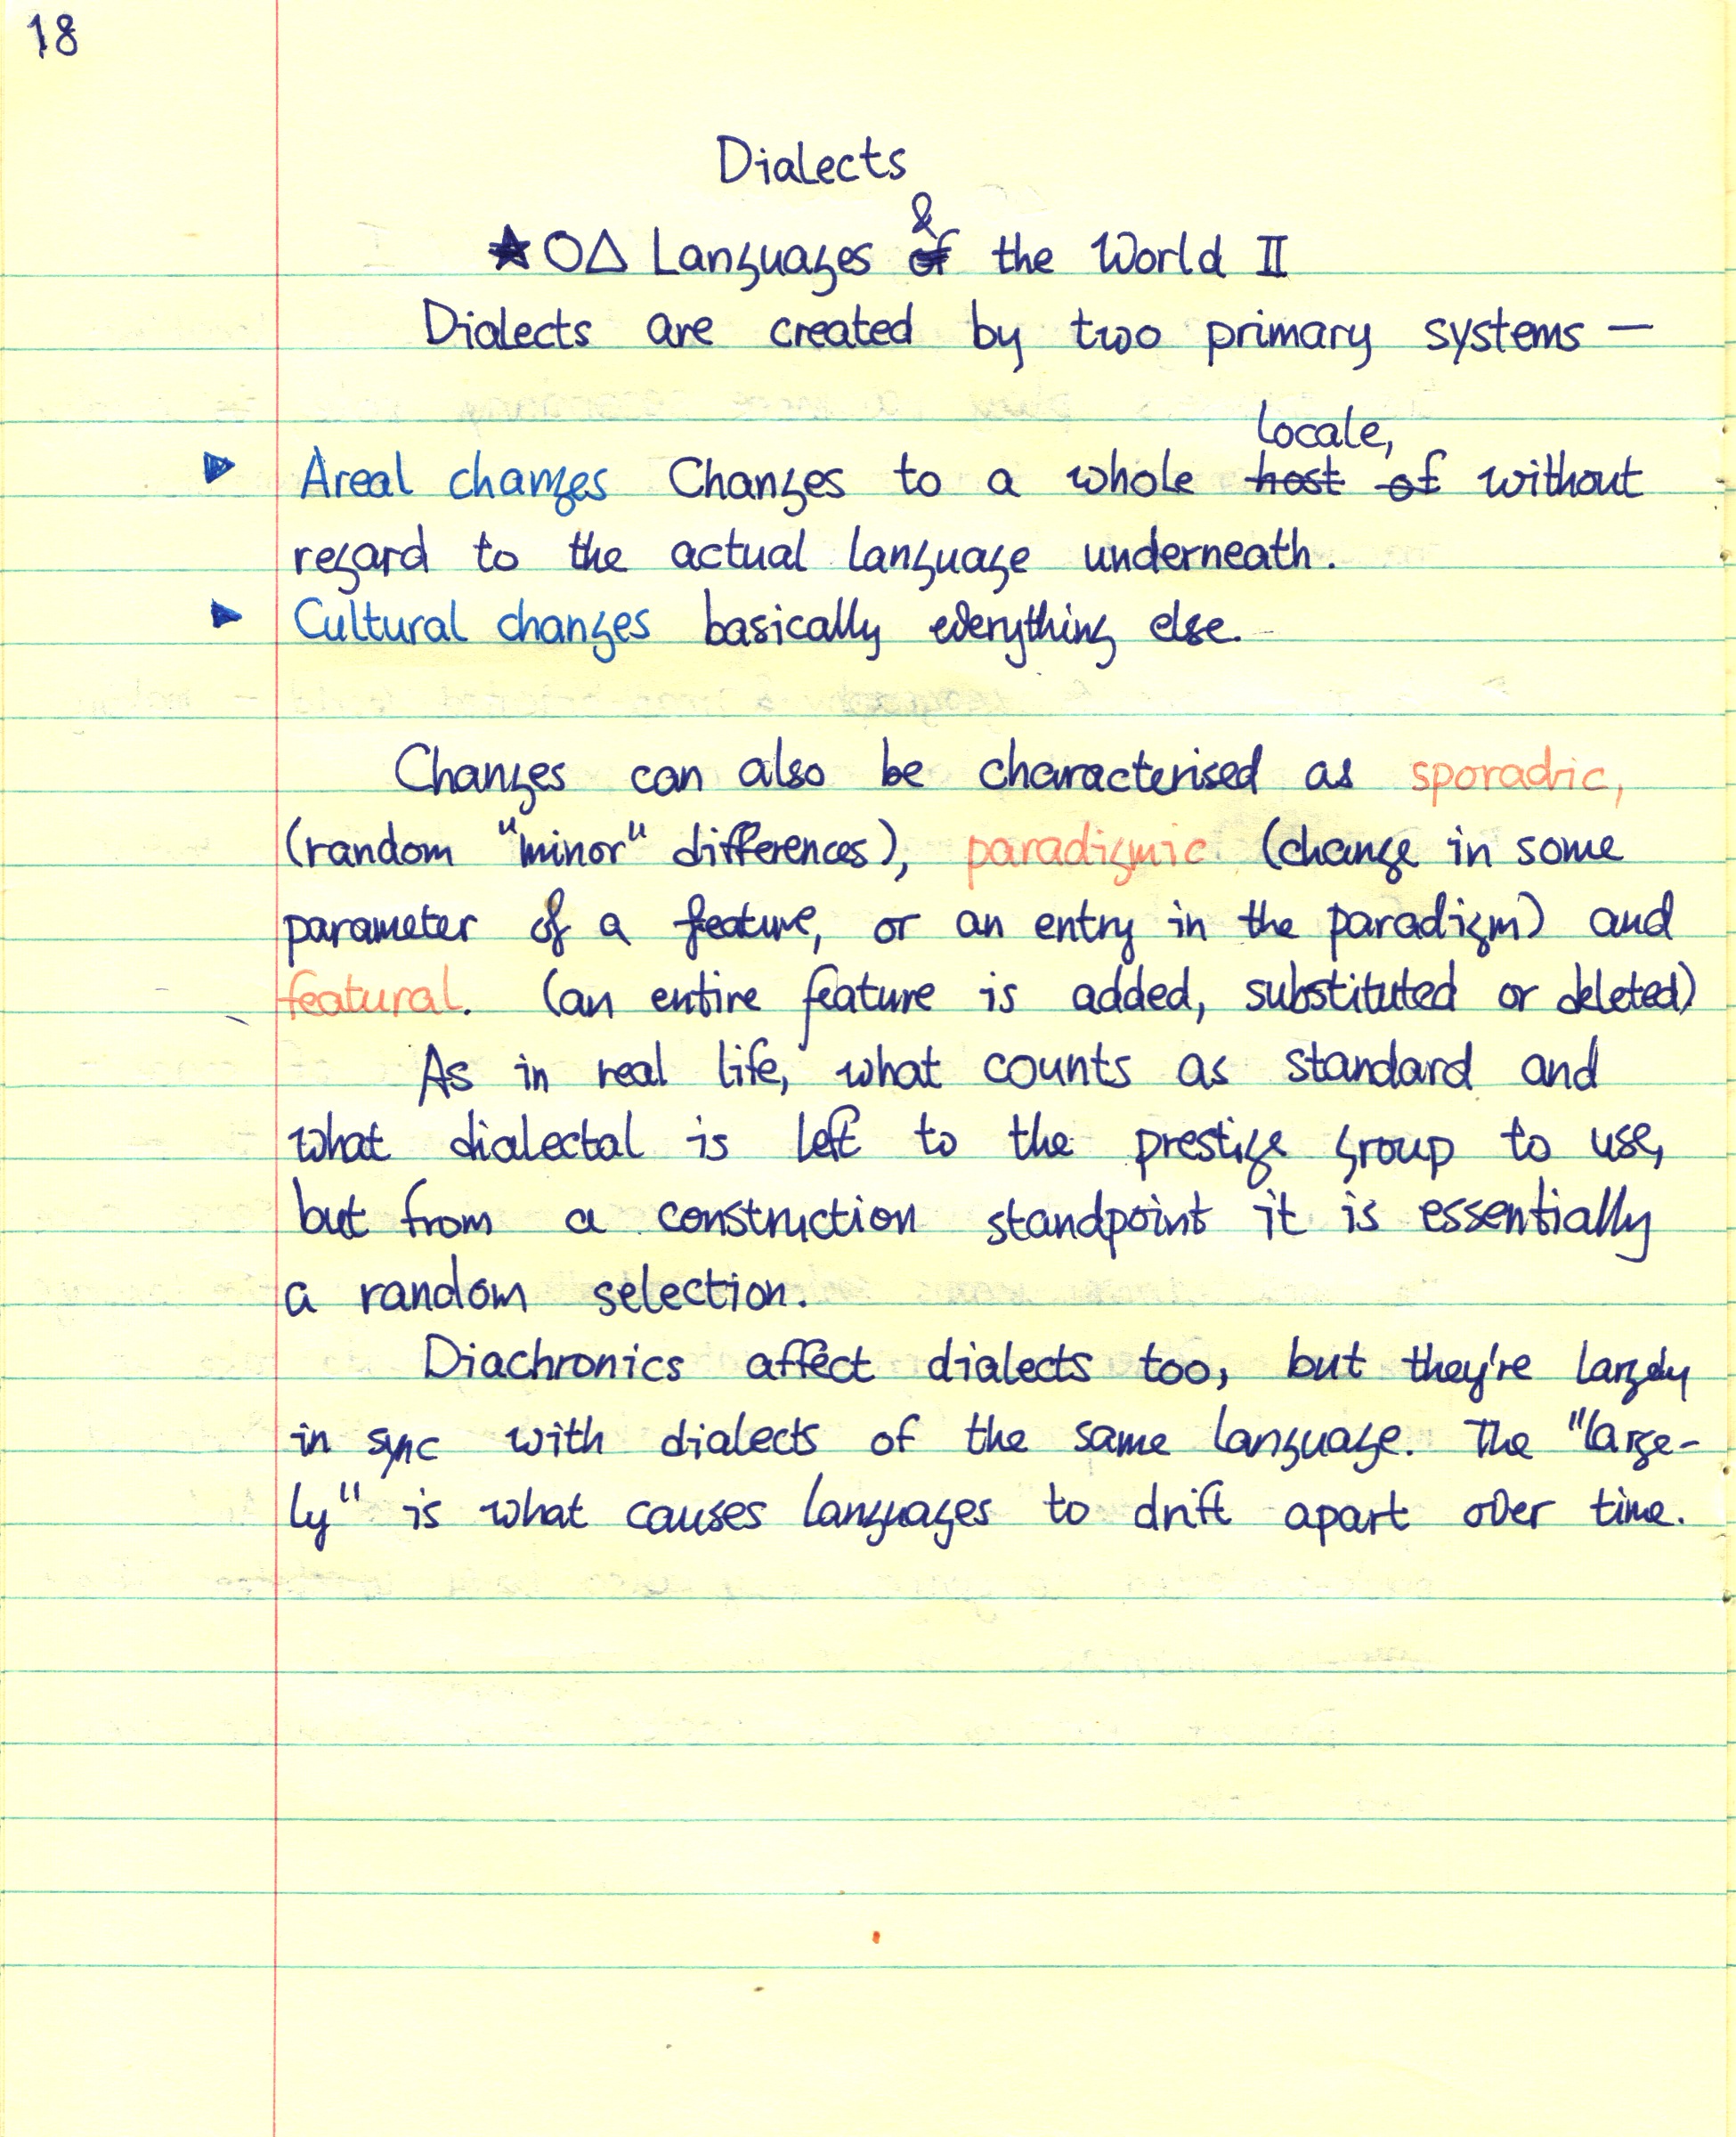 18
Dialects
&
★○△ Languages of the World II
Dialects are created by two primary systems —
locale,
▶ Areal changes Changes to a whole host of without
regard to the actual language underneath.
▶ Cultural changes basically everything else.
Changes can also be characterised as sporadic,
(random "minor" differences), paradigmic (change in some
parameter of a feature, or an entry in the paradigm) and
featural. (an entire feature is added, substituted or deleted)
As in real life, what counts as standard and
what dialectal is left to the prestige group to use,
but from a construction standpoint it is essentially
a random selection.
Diachronics affect dialects too, but they're largely
in sync with dialects of the same language. The "large-
ly" is what causes languages to drift apart over time.